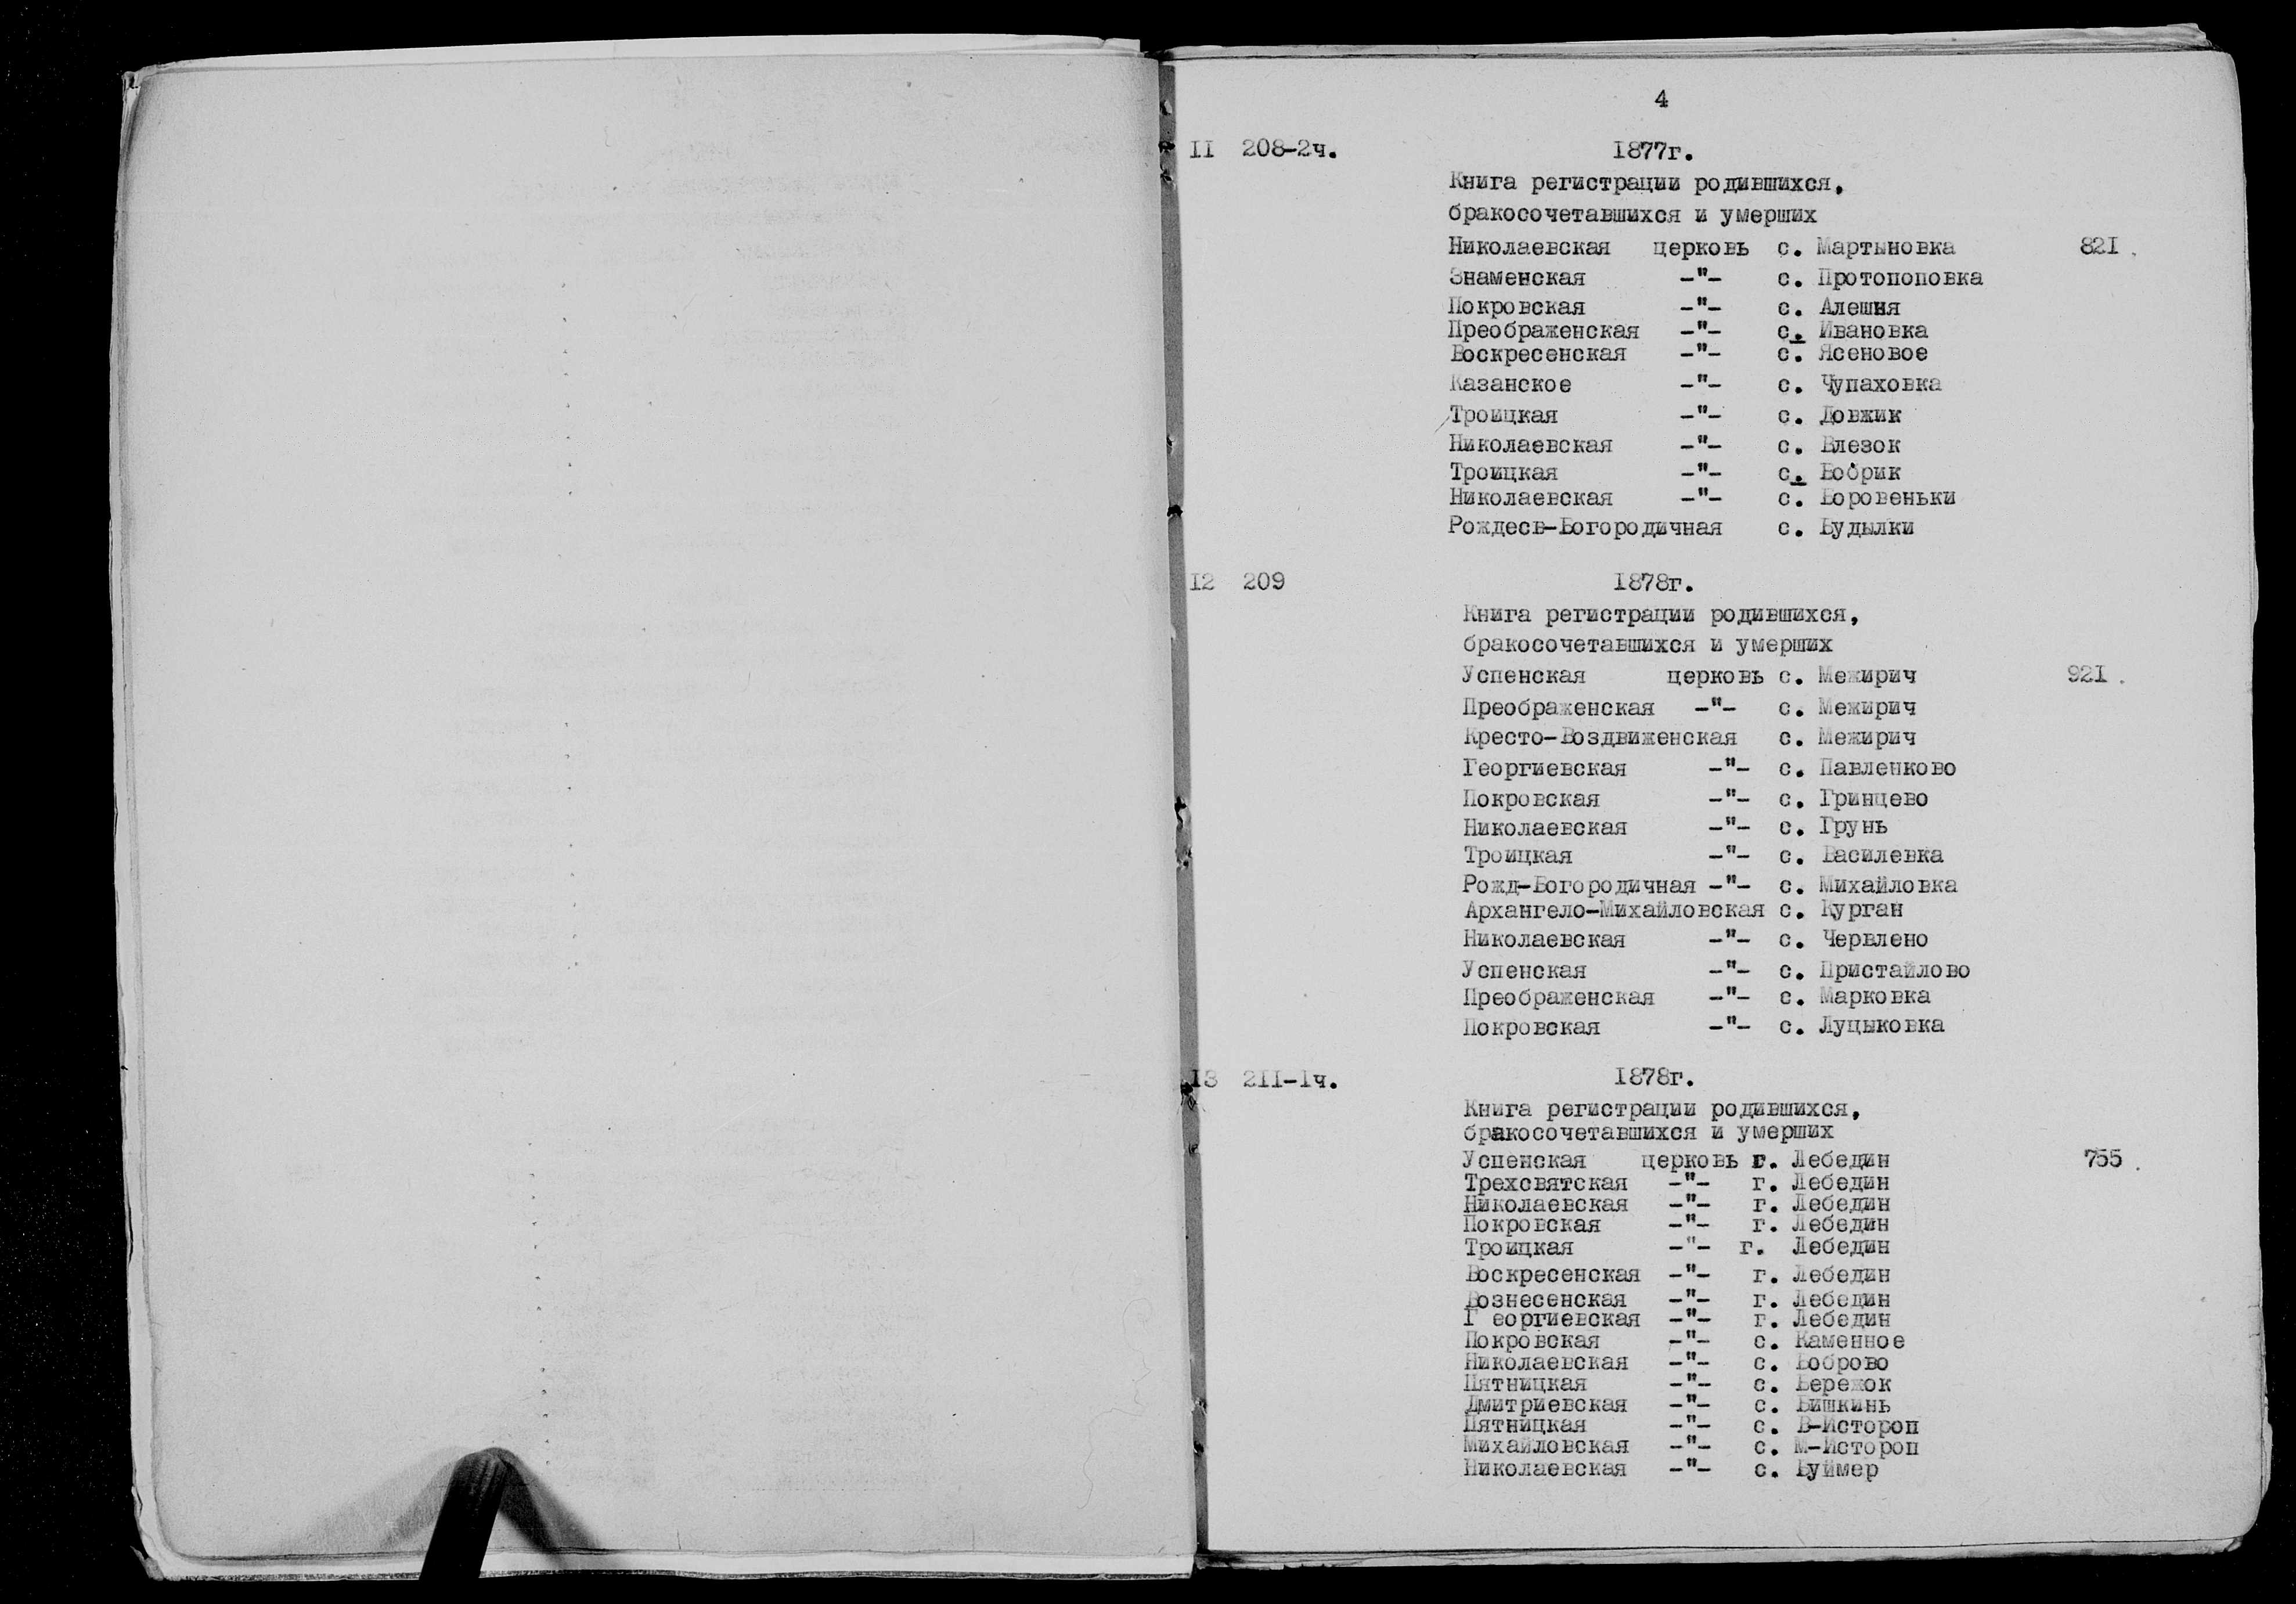 4
II 208-2ч. 1877г.
Книга регистрации родившихся,
бракосочетавшихся и умерших
Николаевская церковь с. Мартыновка 82I.
Знаменская -"- с. Протопоповка
Покровская -"- с. Алешня
Преображенская -"- с. Ивановка
Воскресенская -"- с. Ясеновое
Казанское -"- с. Чупаховка
Троицкая -"- с. Довжик
Николаевская -"- с. Влезок
Троицкая -"- с. Бобрик
Николаевская -"- с. Боровеньки
Рождесв-Богородичная с. Будылки
I2 209 1878г.
Книга регистрации родившихся,
бракосочетавшихся и умерших
Успенская церковь с. Межирич 92I.
Преображенская -"- с. Межирич
Кресто-Воздвиженская с. Межирич
Георгиевская -"- с. Павленково
Покровская -"- с. Гринцево
Николаевская -"- с. Грунь
Троицкая -"- с. Василевка
Рожд-Богородичная -"- с. Михайловка
Архангело-Михайловская с. Курган
Николаевская -"- с. Червлено
Успенская -"- с. Пристайлово
Преображенская -"- с. Марковка
Покровская -"- с. Луцыковка
I3 2II-1ч. 1878г.
Книга регистрации родившихся,
бракосочетавшихся и умерших
Успенская церковь г. Лебедин 755.
Трехсвятская -"- г. Лебедин
Николаевская -"- г. Лебедин
Покровская -"- г. Лебедин
Троицкая -"- г. Лебедин
Воскресенская -"- г. Лебедин
Вознесенская -"- г. Лебедин
Г еоргиевская -"- г. Лебедин
Покровская -"- с. Каменное
Николаевская -"- с. Боброво
Пятницкая -"- с. Бережок
Дмитриевская -"- с. Бишкинь
Пятницкая -"- с. В-Истороп
Михайловская -"- с. М-Истороп
Николаевская -"- с. Буймер